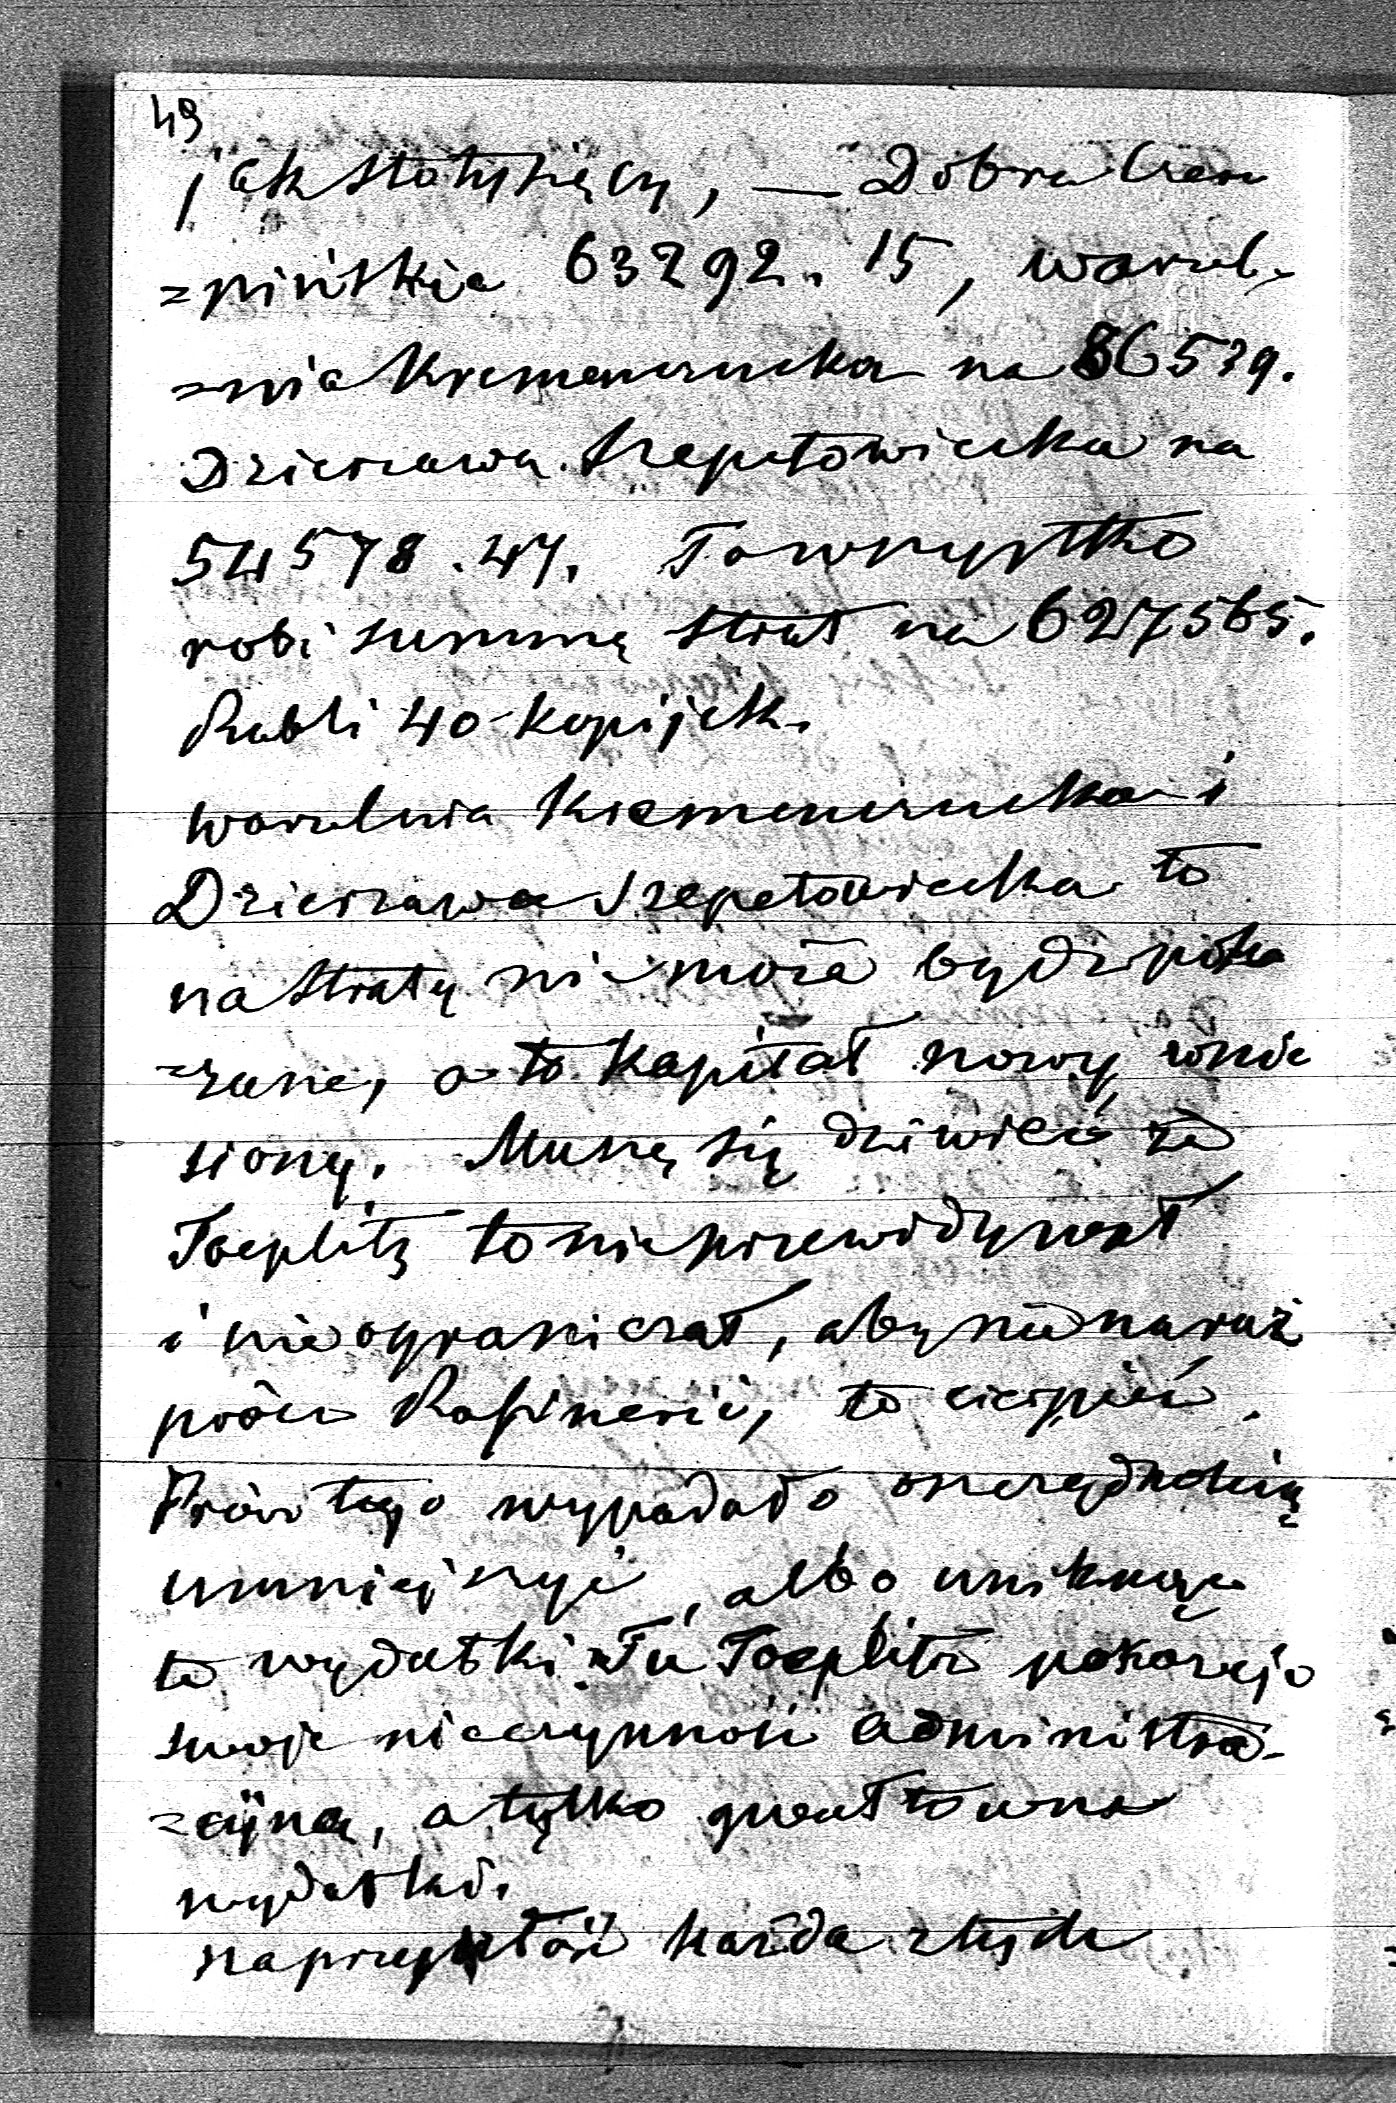 49
jak stotysięcy, — Dobra Crem
=pińskie 63292. 15, warzel,
=nia Kremenczucka na 86539.
Dzierzawa Szepetowiecka na
54578.47. To wszystko
robi summę strat na 627565.
Rubli 40 kopijek.
warzelnia Kremenczucka i
Dzierzawa Szepetowiecka to
na straty nie może bydź poka
=zane, a to kapitał nowy wnie
siony. Muszę się dziwieć że
Toeplitz to nie przewidywał
i nie ograniczał, aby nie naraz
prócz Rafinerii, to cierpieć.
Prócz tego wypadało oszczędnością
umniejszyć, albo uniknąć
te wydatki. Tu Toeplitz pokazuje
swoje nieczynność administra-
=cijną, a tylko gwałtowne
wydatki.
na przyszłość każda z tych